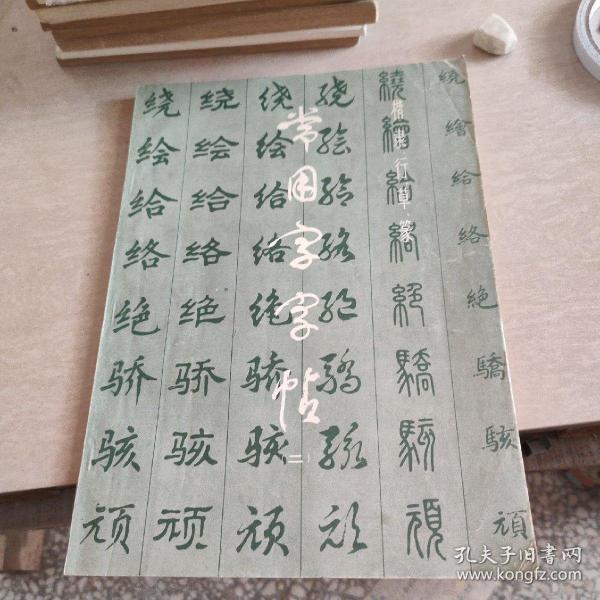 常用字字帖
二
楷、隶、行、草、篆
绕 绕 绕 绕 繞 繞
绘 绘 绘 绘 繪 繪
给 给 给 给 給 給
络 络 络 络 絡 絡
绝 绝 绝 绝 絕 絶
骄 骄 骄 驕 驕 驕
骇 骇 骇 骇 駭 駭
顽 顽 顽 顽 頑 頑
孔夫子旧书网
www.kongfz.com